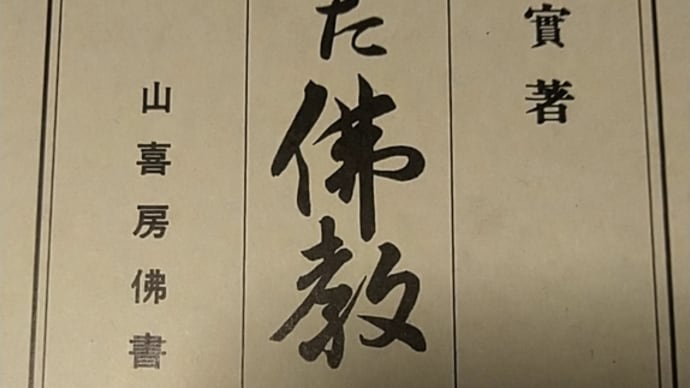 實著
た佛教
山喜房佛書